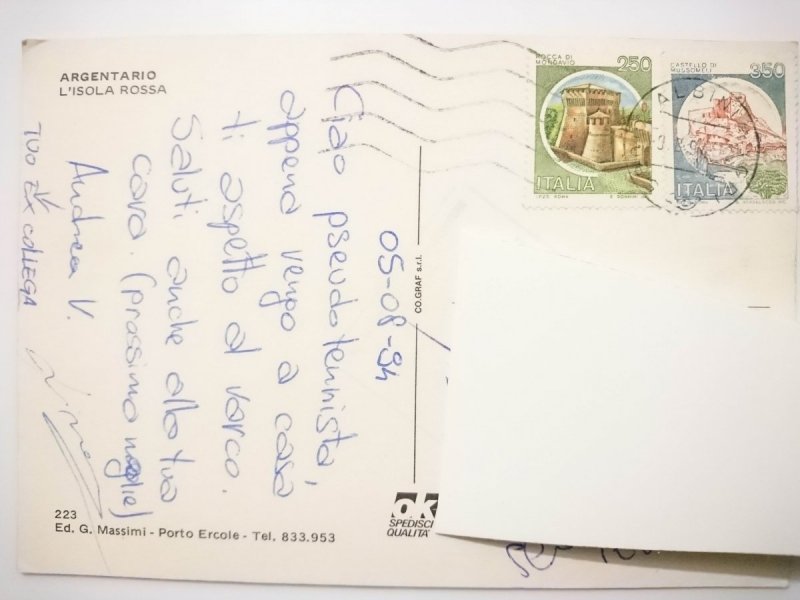 ARGENTARIO
L'ISOLA ROSSA
ROCCA DI
MONDAVIO
250
ITALIA
CASTELLO DI
MUSSOMELI
350
ITALIA
05-08-94
Ciao pseudo tennista,
appena vengo a casa
ti aspetto al varco.
Saluti anche alla tua
cara. (prossima moglie)
Andrea V.
TUO EX COLLEGA
CO.GRAF s.r.l.
ok
SPEDISCI
QUALITÀ
223
Ed. G. Massimi - Porto Ercole - Tel. 833.953